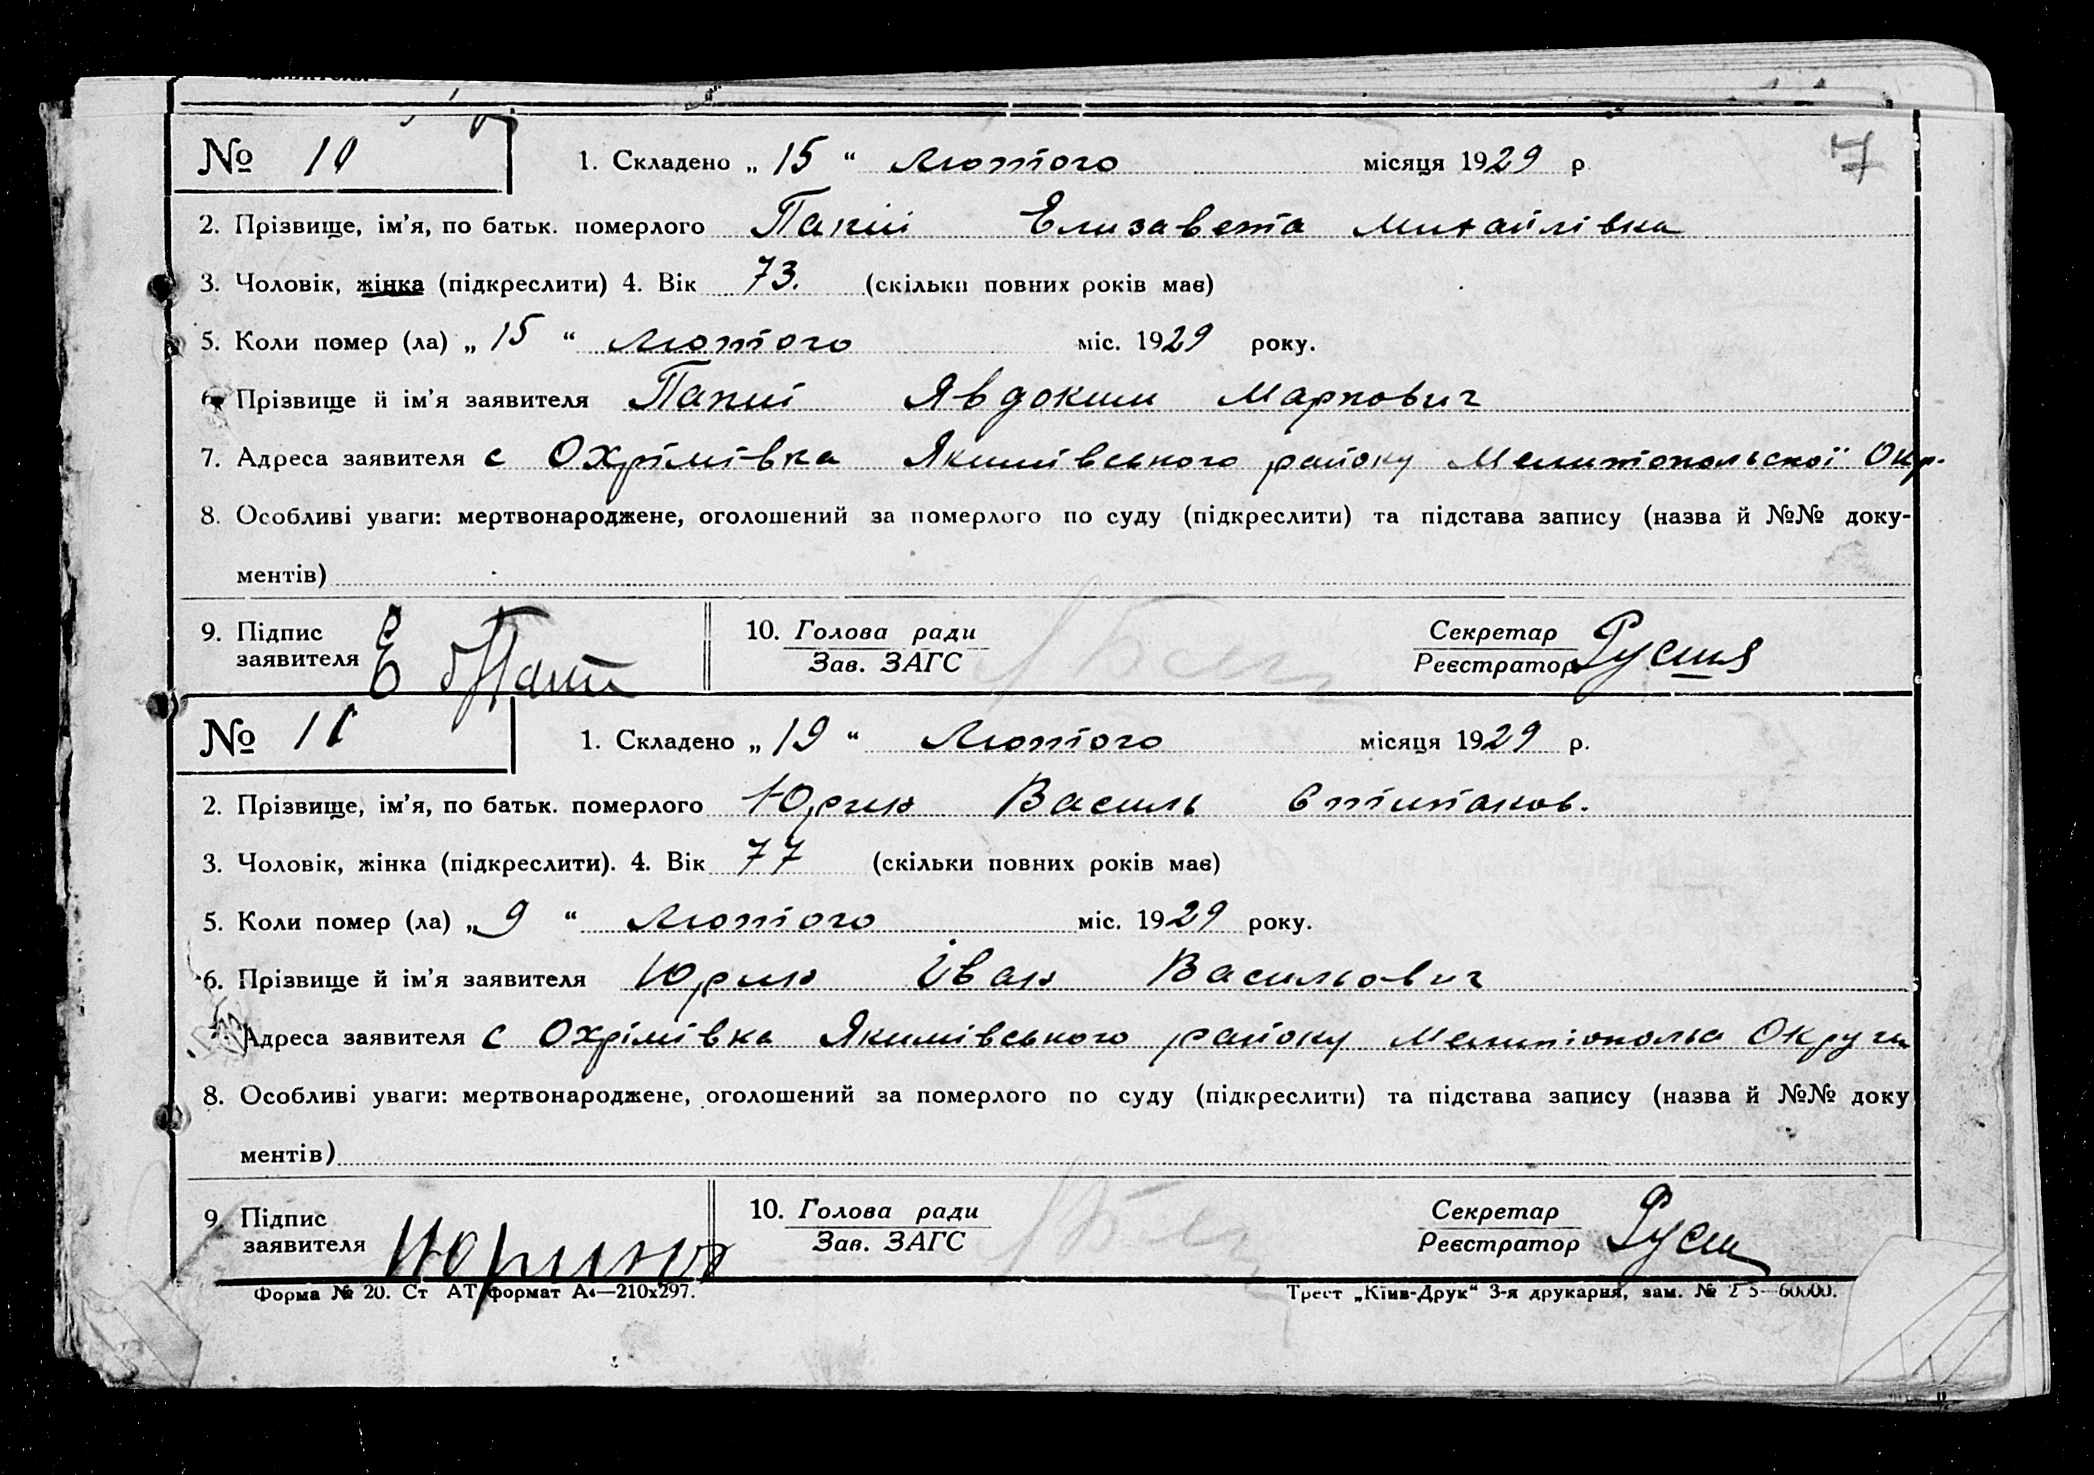 7
№ 10 1. Складено „ 15 “ лютого місяця 1929 р
2. Прізвище, ім’я, по батьк. померлого Папій Елизавета Михайлівка
3. Чоловік, жінка (підкреслити) 4. Вік 73. (скільки повних років має)
5. Коли помер (ла) „ 15 “ лютого міс. 1929 року.
6. Прізвище й ім’я заявителя Папій Явдоким Маркович
7. Адреса заявителя с Охрімівка Якимівського району Мелитопольської Окр.
8. Особливі уваги: мертвонароджене, оголошений за померлого по суду (підкреслити) та підстава запису (назва й №№ доку-
ментів)
9. Підпис 10. Голова ради Секретар
заявителя Зав. ЗАГС Реєстратор
№ 11 1. Складено „ 19 “ лютого місяця 1929 р.
2. Прізвище, ім’я, по батьк. померлого Юрин Василь
3. Чоловік, жінка (підкреслити). 4. Вік 77 (скільки повних років має)
5. Коли помер (ла) „ 9 “ лютого міс. 1929 року.
6. Прізвище й ім’я заявителя Юрин Іван Васильович
Адреса заявителя с Охрімівка Якимівського району Округи
8. Особливі уваги: мертвонароджене, оголошений за померлого по суду (підкреслити) та підстава запису (назва й №№ доку
ментів)
9. Підпис 10. Голова ради Секретар
заявителя Зав. ЗАГС Реєстратор
Форма № 20. Ст АТ формат А4—210х297. Трест „Київ-Друк“ 3-я друкарня, зам. №